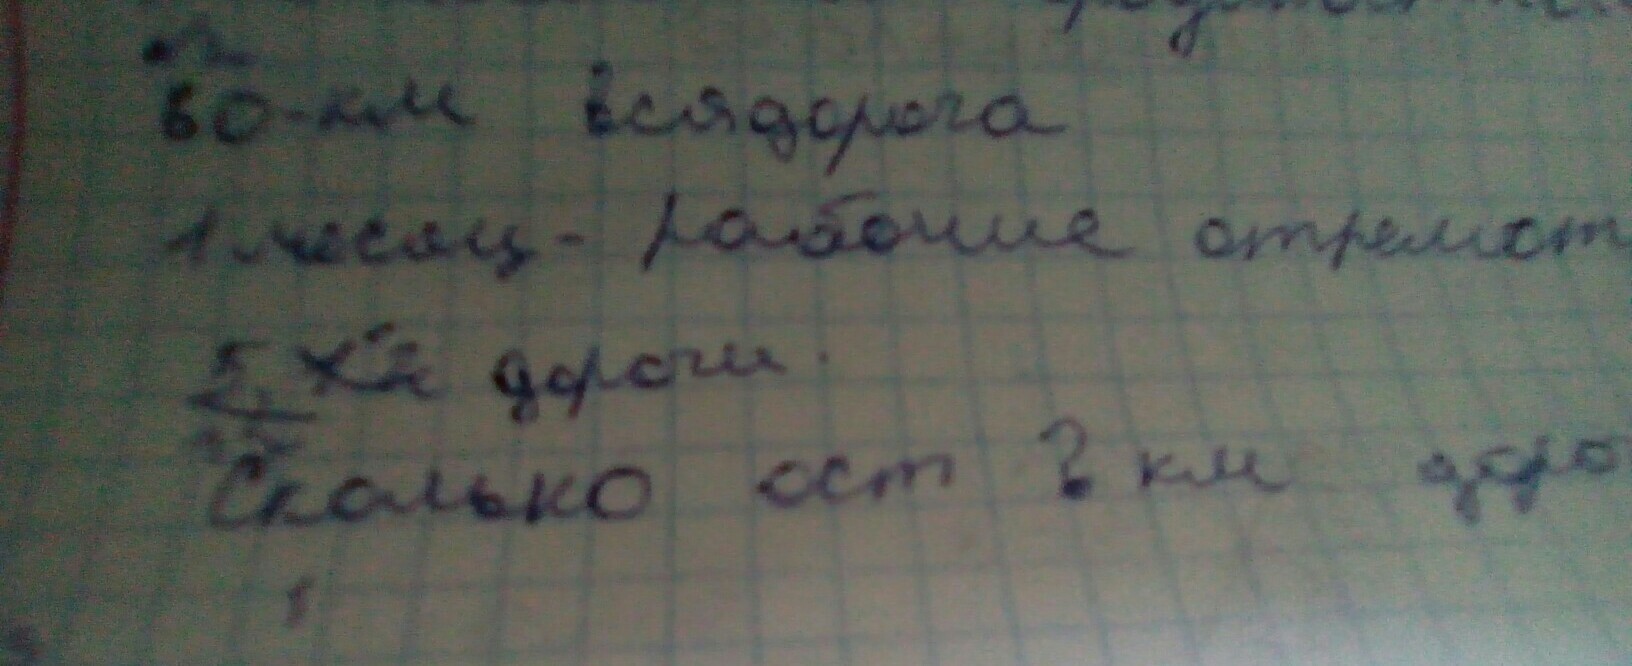 60-км всядорога
1 месяц - рабочие отремот
5 км дороги.
Сколько ост ? км доро